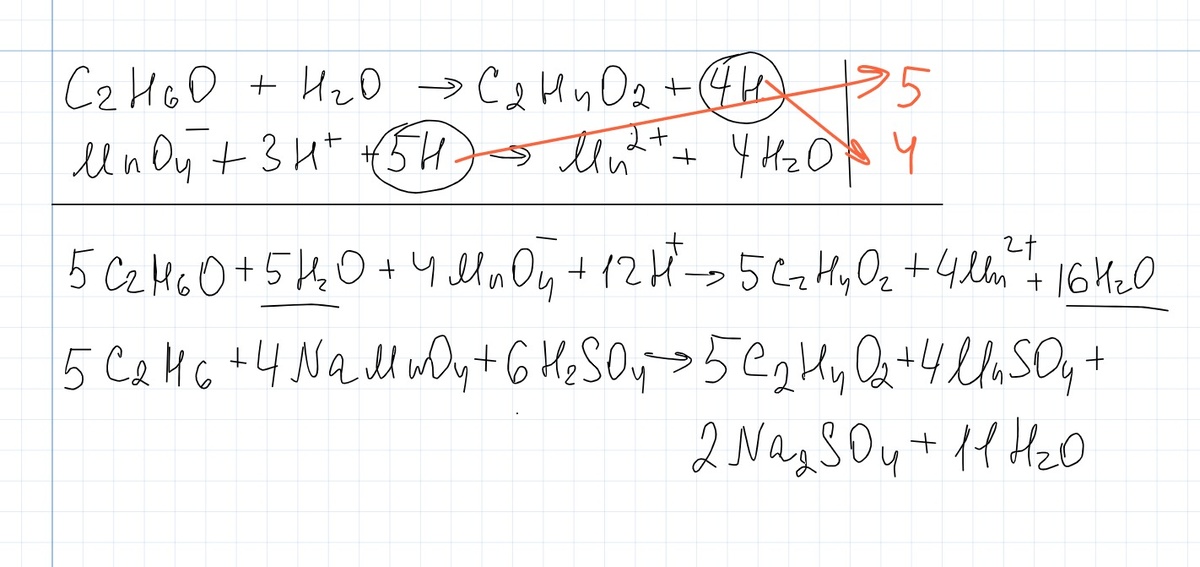 C₂H₆O + H₂O → C₂H₄O₂ + 4H | 5
MnO₄⁻ + 3H⁺ + 5H → Mn²⁺ + 4H₂O | 4
5C₂H₆O + 5H₂O + 4MnO₄⁻ + 12H⁺ → 5C₂H₄O₂ + 4Mn²⁺ + 16H₂O
5C₂H₆ + 4NaMnO₄ + 6H₂SO₄ → 5C₂H₄O₂ + 4MnSO₄ +
2Na₂SO₄ + 11H₂O